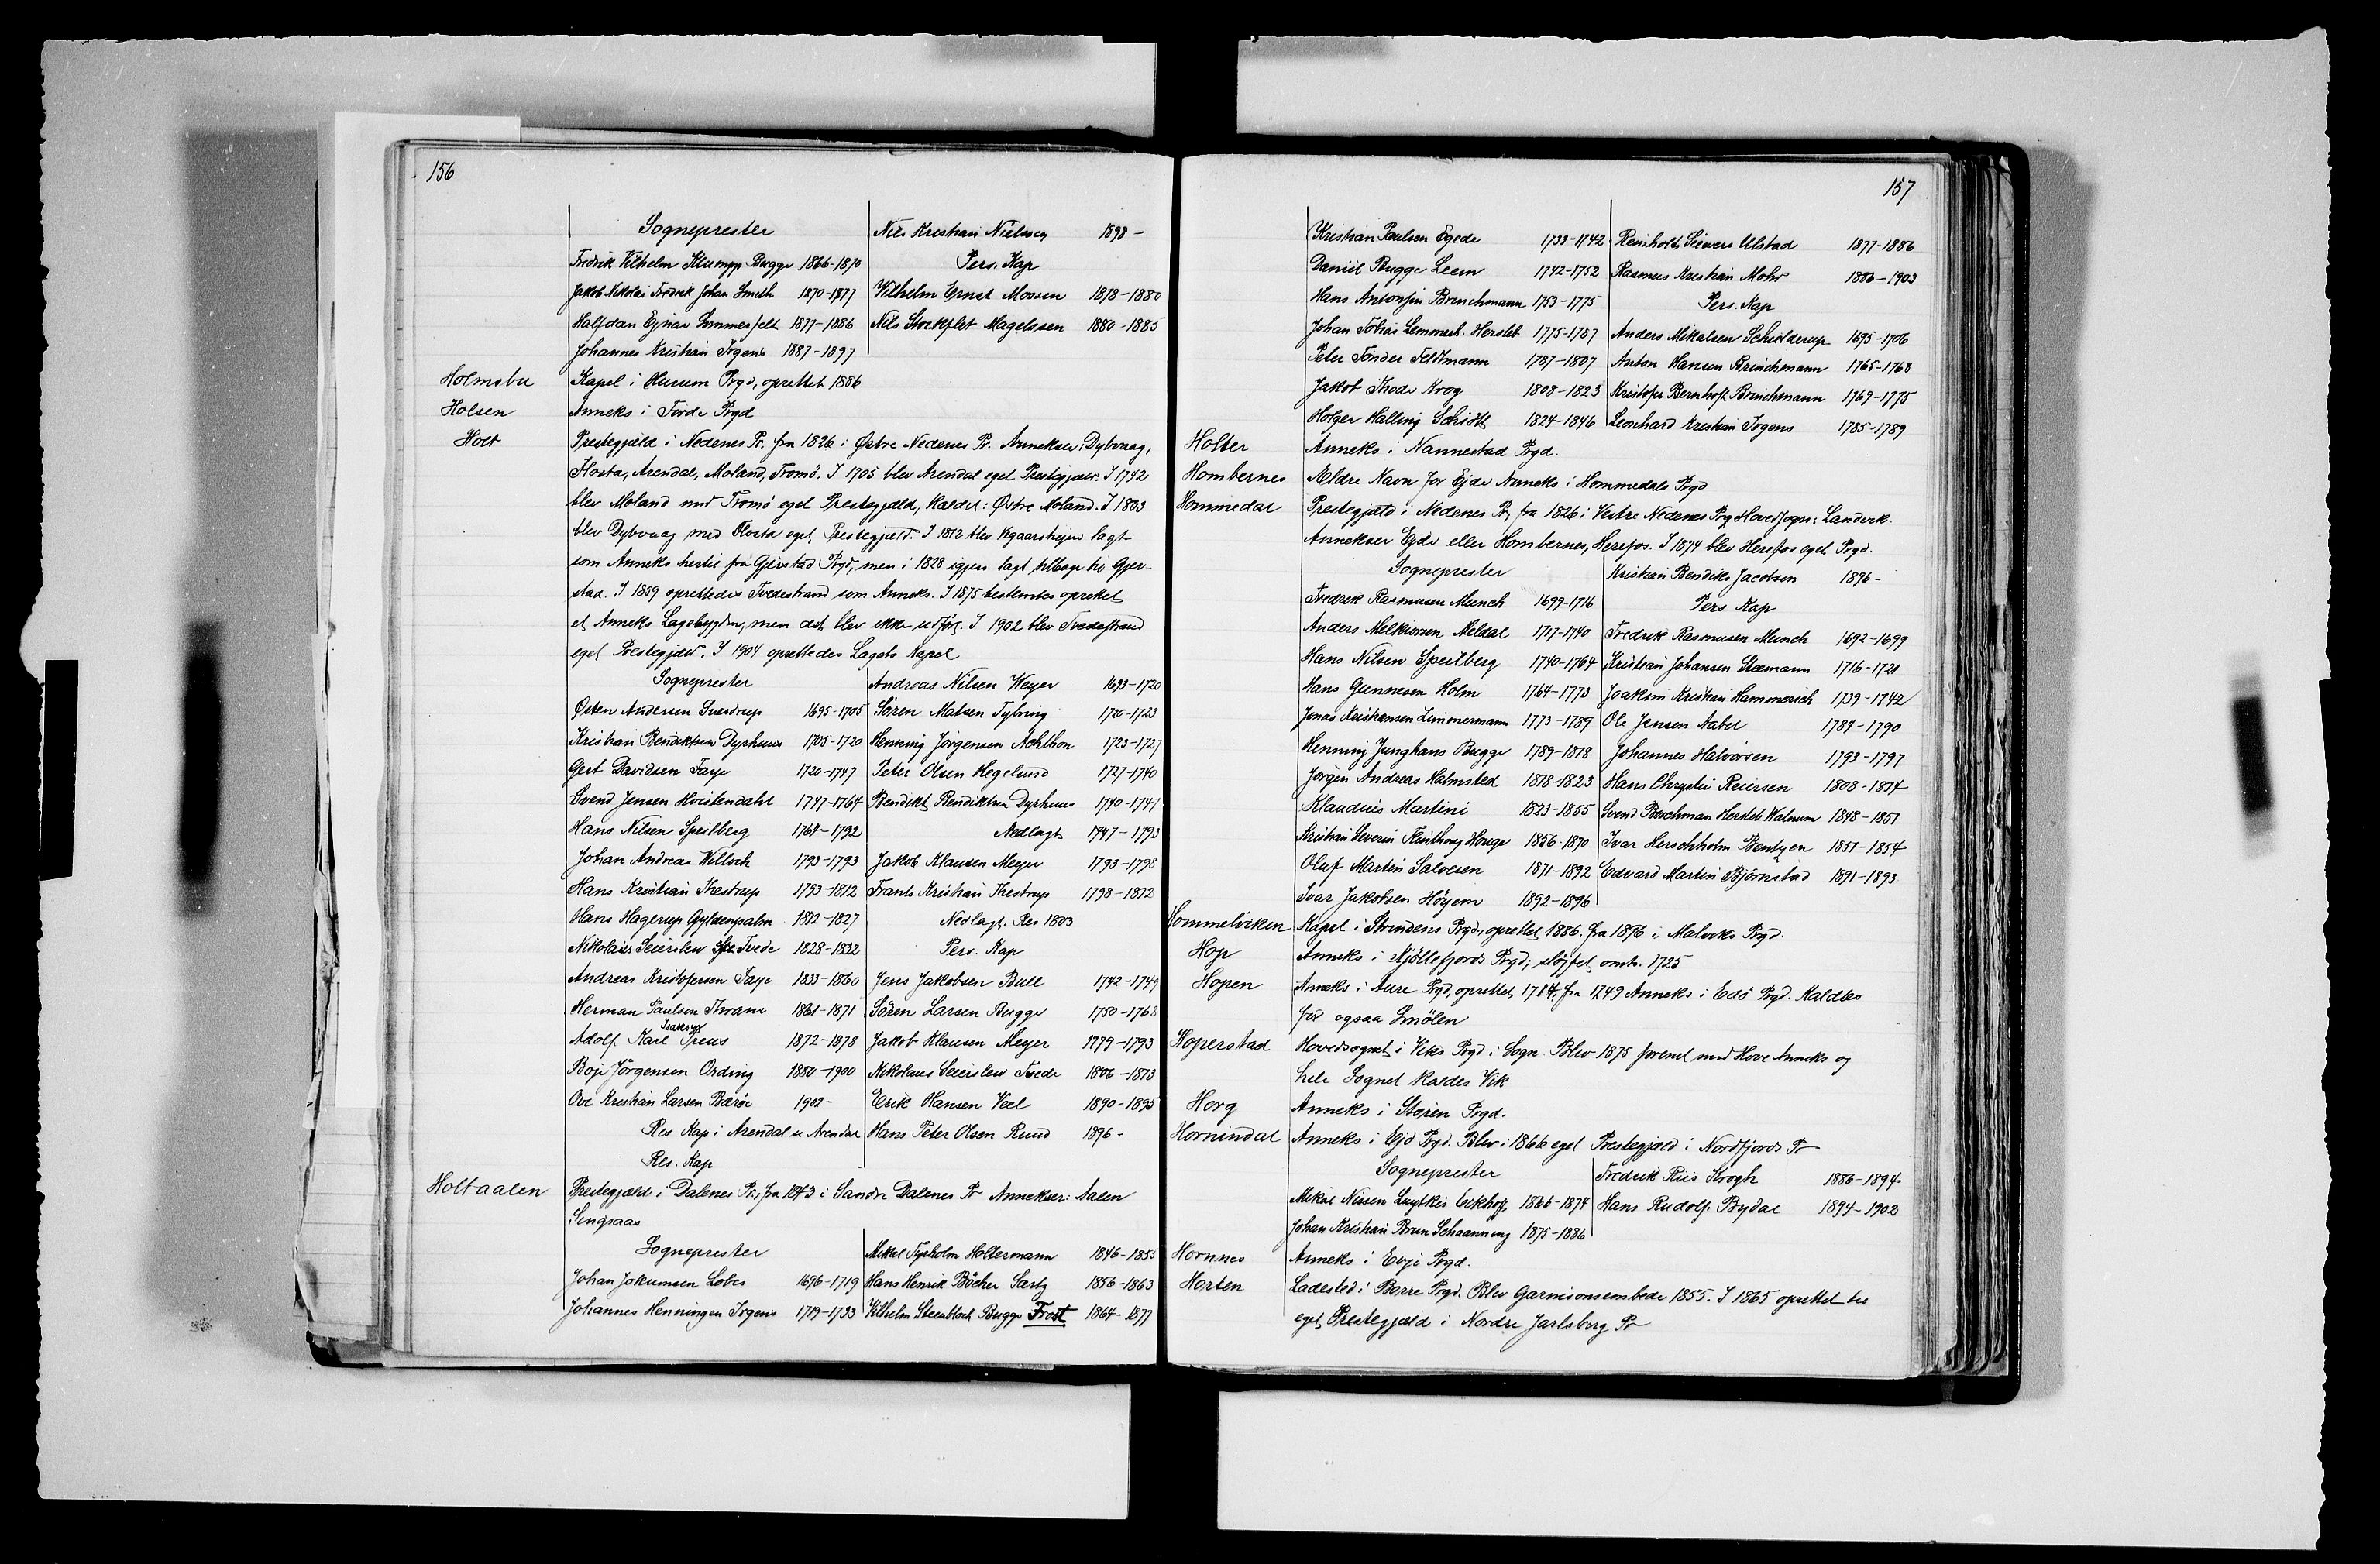 156
Sogneprester
Fredrik Vilhelm Klumpp Bugge 1866-1870
Jakob Nikolai Fredrik Johan Smith 1870-1877
Halfdan Ejnar Sommerfelt 1877-1886
Johannes Kristian Irgens 1887-1897
Nils Kristian Nielsen 1898-
Pers. Kap
Vilhelm Ernst Moosen 1878-1880
Nils Stockflet Magelssen 1880-1885
Holmsbu Kapel i Hurum Prgd, oprettet 1886
Holsen Anneks i Førde Prgd
Holt Prestegjæld i Nedenes Pr. fra 1826 i Østre Nedenes Pr. Annekser: Dybvaag,
Flosta, Arendal, Moland, Tromö. I 1705 blev Arendal eget Prestegjæld. I 1742
blev Moland med Tromö eget Prestegjæld, kaldet: Østre Moland. I 1803
blev Dybvaag med Flosta eget Prestegjæld. I 1812 blev Vegaarsheien lagt
som Anneks hertil fra Gjerstad Prgd, men i 1828 igjen lagt tilbage til Gjer-
stad. I 1859 oprettedes Tvedestrand som Anneks. I 1875 bestemtes oprettet
et Anneks Lagebygden, men det blev ikke udført. I 1902 blev Tvedestrand
eget Prestegjæld. I 1904 oprettedes Lagets Kapel
Sogneprester
Østen Andersen Sverdrup 1695-1705
Kristian Bendiktsen Dyrhuus 1705-1720
Gert Davidsen Faye 1720-1747
Svend Jensen Hvistendahl 1747-1764
Hans Nilsen Speilberg 1764-1792
Johan Andreas Willoch 1793-1793
Hans Kristian Thestrup 1793-1812
Hans Hagerup Gyldenpalm 1812-1827
Nikolaus Seierslew Tvede 1828-1832
Andreas Kristofersen Faye 1833-1860
Herman Paulsen Thrane 1861-1871
Isaksen
Adolf Karl Preus 1872-1878
Boje Jörgensen Ording 1880-1900
Ove Kristian Larsen Barøe 1902-
Res Kap i Arendal se Arendal
Res. Kap
Andreas Nilsen Weyer 1693-1720
Søren Matsen Tybring 1720-1723
Henning Jörgensen Achthon 1723-1727
Peter Olsen Hegelund 1727-1740
Bendikt Bendiktsen Dyrhuus 1740-1747
Nedlagt 1747-1793
Jakob Klausen Meyer 1793-1798
Frants Kristian Thestrup 1798-1812
Nedlagt. Res 1803
Pers. Kap
Jens Jakobsen Bull 1742-1749
Sören Larsen Bugge 1750-1768
Jakob Klausen Meyer 1779-1793
Nikolaus Seierslew Tvede 1806-1813
Erik Hansen Veel 1890-1895
Hans Peter Olsen Ruud 1896-
Holtaalen Prestegjæld i Dalenes Pr., fra 1843 i Søndre Dalenes Pr Annekser: Aalen
Singsaas
Sogneprester
Johan Jokumsen Lobes 1696-1719
Johannes Henningen Irgens 1719-1733
Mikal Tyrholm Holtermann 1846-1855
Hans Henrik Böcher Sartz 1856-1863
Vilhelm Steenbloch Bugge Frost 1864-1877
157
Kristian Paulsen Egede 1733-1742
Daniel Bugge Leem 1742-1752
Hans Antonsen Brinchmann 1753-1775
Johan Tobias Lemmech. Hersleb 1775-1787
Peter Tönder Feltmann 1787-1807
Jakob Thode Krog 1808-1823
Holger Halling Schiøtt 1824-1846
Reinholt Sievers Ulstad 1877-1886
Rasmus Kristian Mohr 1886-1903
Pers. Kap
Anders Mikalsen Schielderup 1695-1706
Anton Hansen Brinchmann 1765-1768
Kristofer Bernhoft Brinchmann 1769-1775
Leonhard Kristian Irgens 1785-1789
Holter Anneks i Nannestad Prgd.
Hombernes Ældre Navn for Ejde Anneks i Hommedals Prgd
Hommedal Prestegjæld i Nedenes Pr, fra 1826 i Vestre Nedenes Prg Hovedsogn: Landvik.
Annekser Egde eller Hombernes, Herefos. I 1874 blev Herefos eget Prgd.
Sogneprester
Fredrik Rasmusen Munch 1699-1716
Anders Melkiorsen Meldal 1717-1740
Hans Nilsen Speilberg 1740-1764
Hans Gunnesen Holm 1764-1773
Jonas Kristiansen Zimmermann 1773-1789
Henning Junghans Bugge 1789-1878
Jörgen Andreas Holmsted 1818-1823
Klaudius Martini 1823-1855
Kristian Severin Houge 1856-1870
Oluf Martin Salvesen 1871-1892
Ivar Jakobsen Höyem 1892-1896
Kristian Bendiks Jacobsen 1896-
Pers Kap
Fredrik Rasmusen Munch 1692-1699
Kristian Johansen Steemann 1716-1721
Joakim Kristian Hammerich 1739-1742
Ole Jensen Aabel 1789-1790
Johannes Halvorsen 1793-1797
Hans Chrystie Reiersen 1808-1814
Svend Borchman Hersleb Walnum 1848-1851
Ivar Herschholm Bentzen 1851-1854
Edvard Martin Björnstad 1891-1893
Hommelviken Kapel i Strindens Prgd, oprettet 1886. fra 1896 i Malviks Prgd.
Hop Anneks i Kjöllefjords Prgd; sløjfet omtr. 1725
Hopen Anneks i Aure Prgd, oprettet 1784, fra 1849 Anneks i Edö Prgd. Kaldtes
før ogsaa Smölen
Hoperstad Hovedsognet i Viks Prgd i Sogn. Blev 1875 forenet med Hove Anneks og
hele Sognet kaldes Vik
Horg Anneks i Støren Prgd.
Hornindal Anneks i Ejd Prgd. Blev i 1866 eget Prestegjæld i Nordfjords Pr
Sogneprester
Mikal Nissen Luytkis Eckhoff 1866-1874
Johan Kristian Brun Schaanning 1875-1886
Fredrik Riis Krogh 1886-1894
Hans Rudolf Bydal 1894-1902
Hornnes Anneks i Evje Prgd.
Horten Ladested i Borre Prgd. Blev Garnisonsembede 1855. I 1865 oprettet til
eget Prestegjæld i Nordre Jarlsberg Pr